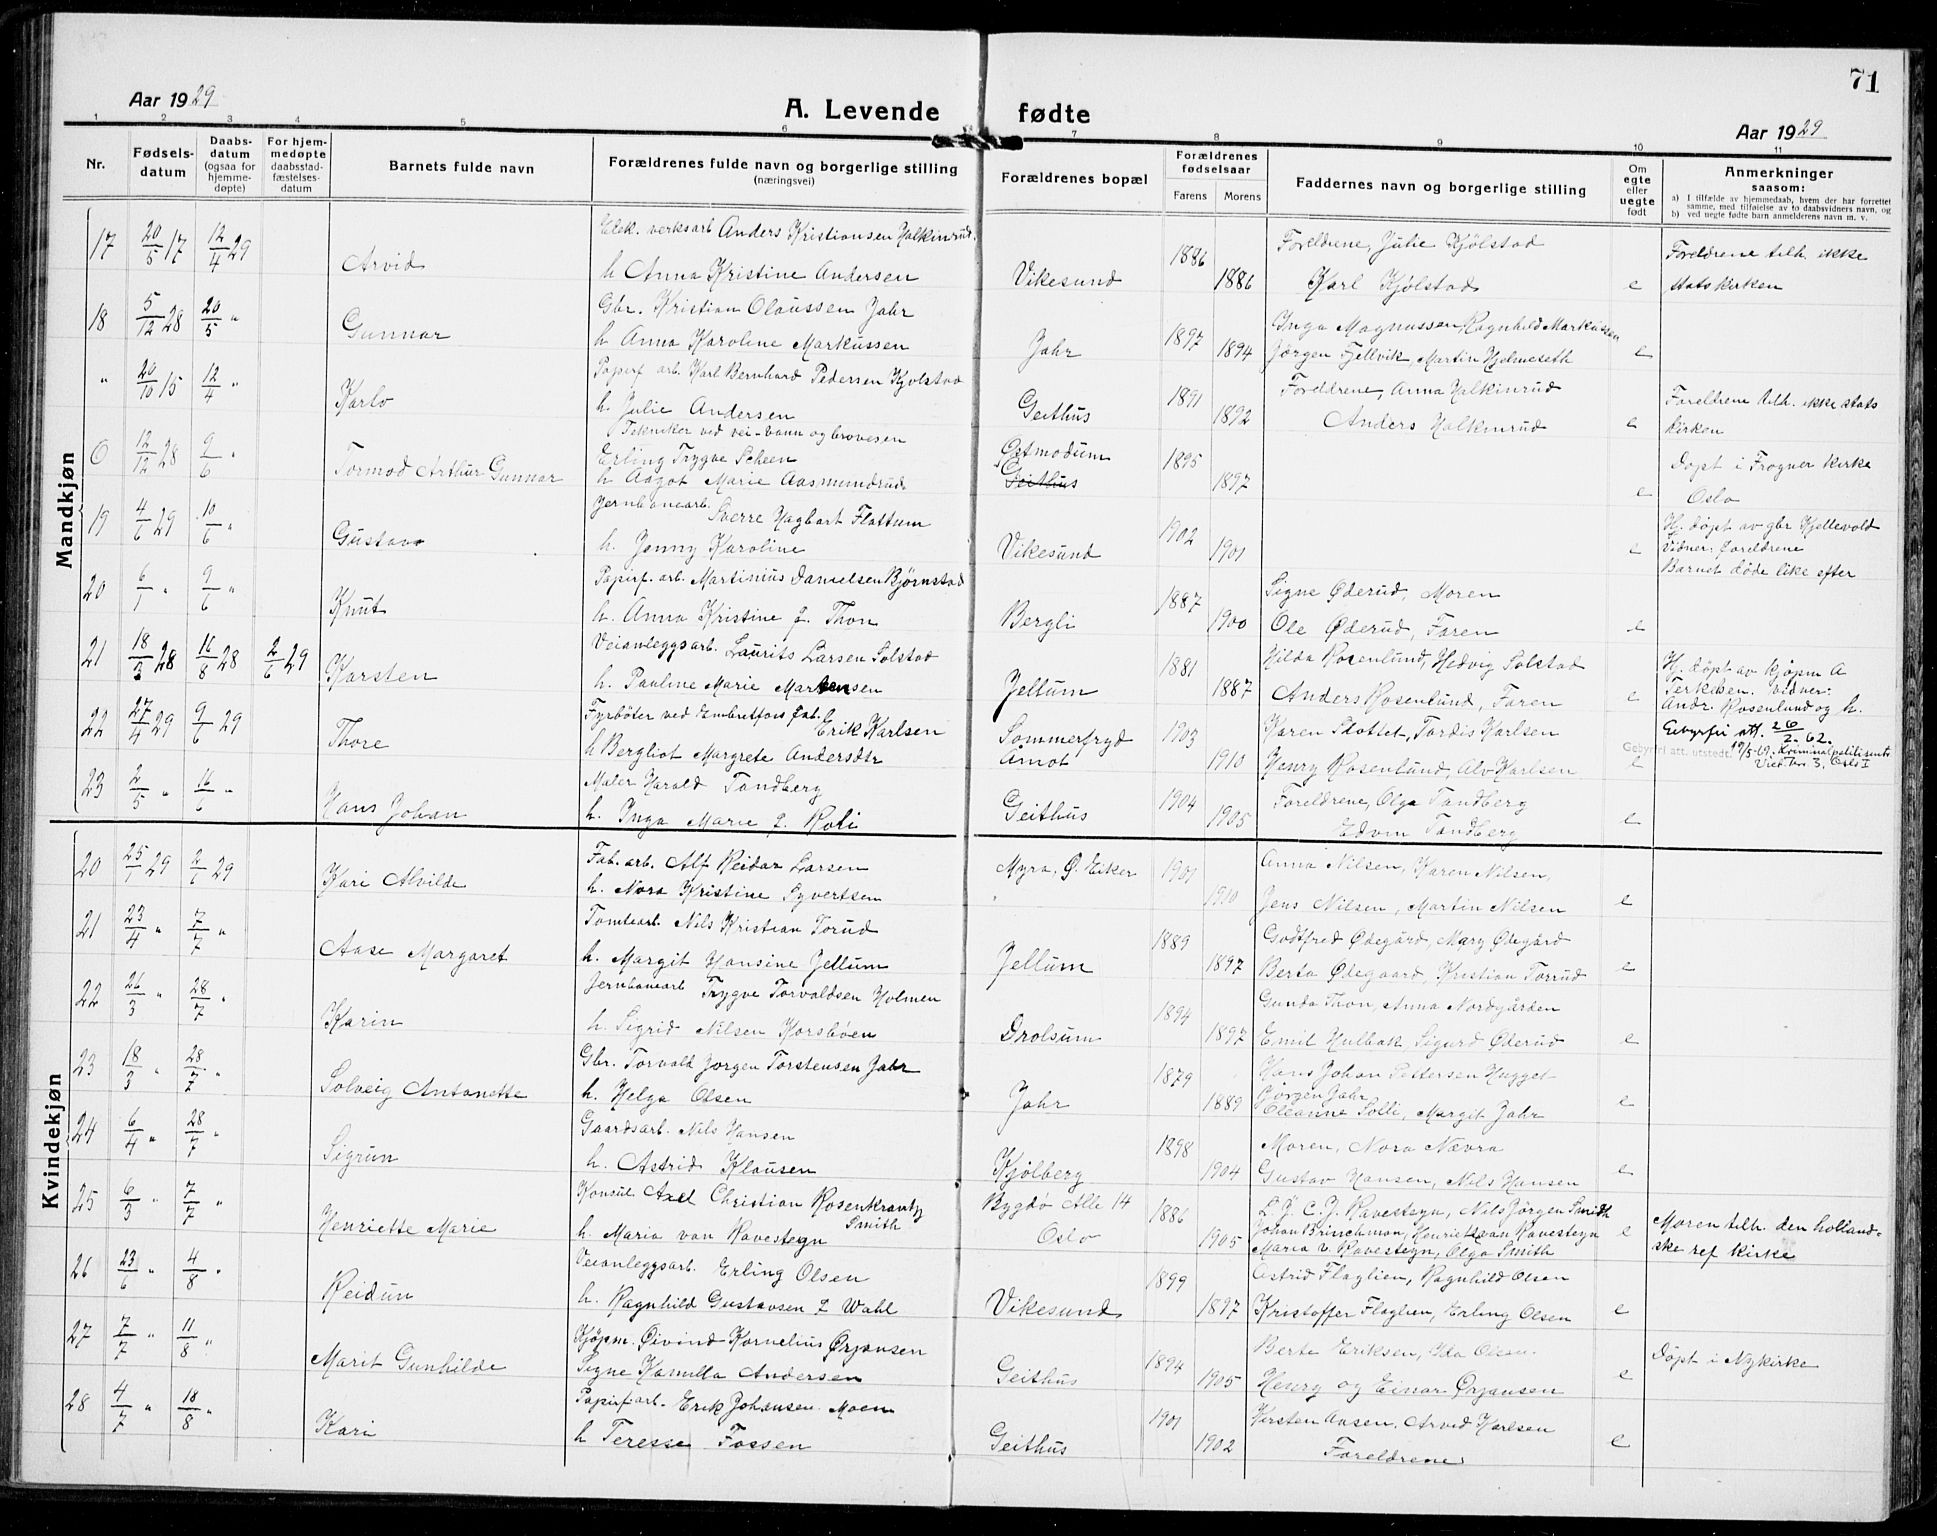 71
Aar 1929
A. Levende fødte
Aar 1929
1 2 3 4 5 6 7 8 9 10 11
Nr.
Fødselsdatum
Daabsdatum (ogsaa for hjemmedøpte)
For hjemmedøpte daabsstadfæstelsesdatum
Barnets fulde navn
Forældrenes fulde navn og borgerlige stilling
(næringsvei)
Forældrenes bopæl
Forældrenes fødselsaar
Farens Morens
Faddernes navn og borgerlige stilling
Om egte eller uegte født
Anmerkninger
saasom:
a) I tilfælde av hjemmedaab, hvem der har forrettet samme, med tilføielse av to daabsvidners navn, og
b) ved uegte fødte barn anmelderens navn m. v.
Mandkjøn
17 20/5 17 12/4 29 Arvid
Elek. verksarb Anders Kristiansen Halkinrud.
h Anna Kristine Andersen
Vikesund 1886 1886
Foreldrene, Julie Kjølstad
Karl Kjølstad e
Foreldrene tilh. ikke
statskirken
18 5/12 28 20/5 " Gunnar
Gbr. Kristian Olaussen Jahr
h Anna Karoline Markussen
Jahr 1897 1894
Inga Magnussen, Ragnhild Markussen
Jørgen Fjellvik, Martin Hjelmeseth e
" 20/10 15 12/4 " Karlo
Papirf arb. Karl Bernhard Pedersen Kjolstad
h. Julie Andersen
Geithus 1891 1892
Foreldrene, Anna Halkinrud
Anders Halkinrud e
Foreldrene tilh. ikke stats
kirken
0 12/12 28 9/6 " Tormod Arthur Gunnar
Tekniker ved vei-vann og brovesen
Erling Trygve Scheen
h Aagot Marie Aasmundrud
Ostmodum
Geithus 1895 1897 e
Døpt i Frogner kirke
Oslo
19 4/6 29 10/6 " Gustav
Jernbanearb. Sverre Hagbart Flattum
h. Jenny Karoline
Vikesund 1902 1901 e
Hj. døpt av gbr Kjellevold
Vidner: Foreldrene
Barnet døde like efter
20 6/1 " 9/6 " Knut
Papirf. arb. Martinius Danielsen Bjørnstad
h. Anna Kristine f. Thon
Bergli 1887 1900
Signe Øderud, Moren
Ole Øderud, Faren e
21 18/3 28 16/8 28 2/6 29 Karsten
Veianleggsarb. Laurits Larsen Solstad
h. Pauline Marie Martensen
Jellum 1881 1887
Hilda Rosenlund, Hedvig Solstad
Anders Rosenlund, Faren e
Hj. døpt av Kjøpm A
Terkiben. Vidner:
Andr. Rosenlund og h.
22 27/4 29 9/6 29 Thore
Fyrbøter ved Embretfoss fab. Erik Karlsen
h Bergliot Margrete Andersdtr
Sommerfryd
Åmot 1903 1910
Karen Slottet, Tordis Karlsen
Henry Rosenlund, Alv Karlsen e
Gebyrfri att. 26/2.62.
Gebyrfri att. utstedt. 19/5-69. Kriminalpolitisents
Vied. tn. 3. Oslo I
23 2/5 " 16/6 " Hans Johan
Maler Harald Tandberg
h. Inga Marie f. Roli
Geithus 1904 1905
Foreldrene, Olga Tandberg
Edvin Tandberg e
Kvindekjøn
20 25/1 29 2/6 29 Kari Alvilde
Fab. arb. Alf Reidar Larsen
h. Nora Kristine Syvertsen
Myra, Ø. Eiker 1901 1910
Anna Nilsen, Karen Nilsen,
Jens Nilsen, Martin Nilsen e
21 23/4 " 7/7 " Aase Margaret
Tomtearb. Nils Kristian Torud
h. Margit Hansine Jellum
Jellum 1889 1897
Godtfred Ødegård, Mary Ødegård
Berta Ødegaard, Kristian Torrud e
22 26/3 " 28/7 " Karin
Jernbanearb Trygve Torvaldsen Holmen
h. Sigrid Nilsen Korsbøen
Drolsum 1894 1897
Gunda Thon, Anna Nordgården
Emil Hulbak, Sigurd Øderud e
23 18/3 " 28/7 " Solveig Antonette
Gbr. Torvald Jørgen Torstensen Jahr
h. Helga Olsen
Jahr 1879 1889
Hans Johan Pettersen Hugget
Jørgen Jahr
Oleanne Solli, Margit Jahr e
24 6/4 " 28/7 " Sigrun
Gaardsarb. Nils Hansen
h. Astrid Klausen
Kjølberg 1898 1904
Moren, Nora Nævra
Gustav Hansen, Nils Hansen e
25 6/3 " 7/7 " Henriette Marie
Konsul Axel Christian Rosenkrantz
Smith
h. Maria van Ravesteyn
Bygdø Alle 14
Oslo 1886 1905
L. J. C. J. Ravesteyn, Nils Jörgen Smidh
Johan Brinchman, Henriett van Ravesteyn
Maria v. Ravesteyn, Olga Smith e
Moren tilh. den holland-
ske ref kirke
26 23/6 " 4/8 " Reidun
Veianleggsarb. Erling Olsen
h. Ragnhild Gustavsen f Wahl
Vikesund 1899 1897
Astrid Flaglien, Ragnhild Olsen
Kristoffer Flaglien, Erling Olsen e
27 7/7 " 11/8 " Marit Gunhilde
Kjøpm. Øivind Kornelius Ørjansen
Signe Kamilla Andersen
Geithus 1894 1905
Berte Eriksen, Ida Olsen.
Henry og Einar Ørjansen e
Døpt i Nykirke
28 4/7 " 18/8 " Kari
Papirf arb. Erik Johansen Moen
h Teresse Fossen
Geithus 1901 1902
Kirsten Aasen. Arvid Karlsen
Foreldrene e